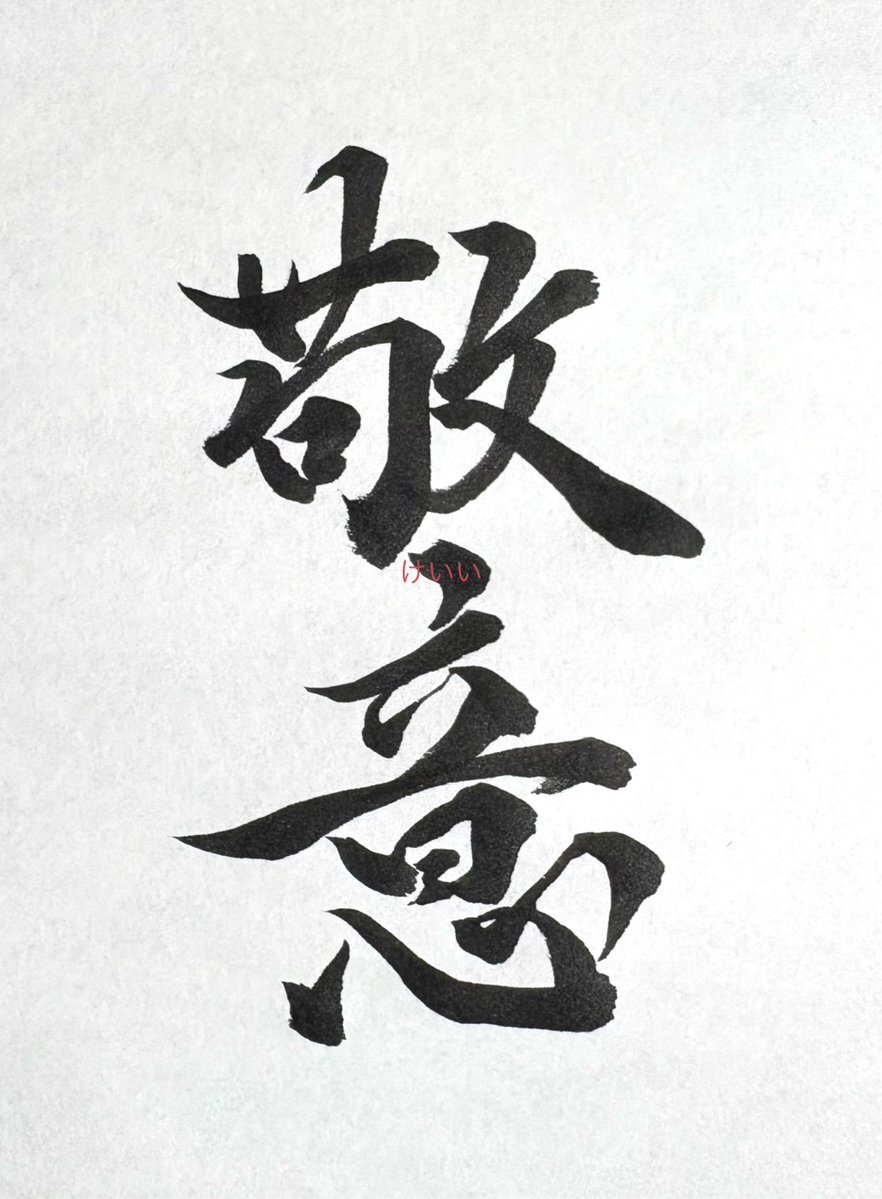 敬意
けいい